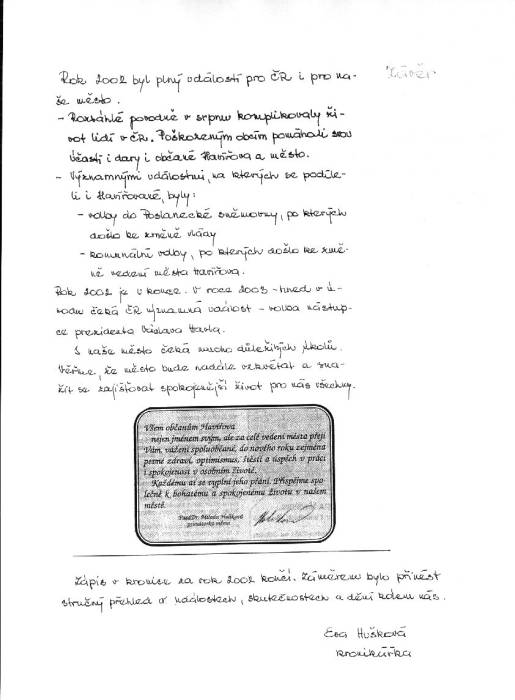 Závěr
Rok 2002 byl plný událostí pro ČR i pro na-
še město.
- Rozsáhlé povodně v srpnu komplikovaly ži-
vot lidí v ČR. Poškozeným obcím pomáhali svou
účastí i dary i občané Havířova a město.
- Významnými událostmi, na kterých se podíle-
li i Havířované, byly:
- volby do Poslanecké sněmovny, po kterých
došlo ke změně vlády
- komunální volby, po kterých došlo ke změ-
ně vedení města Havířova.
Rok 2002 je u konce. V roce 2003 - hned v
čeká ČR významná událost - volba nástup-
ce prezidenta Václava Havla.
I naše město čeká mnoho důležitých úkolů.
Věřme, že město bude nadále vzkvétat a sna-
žit se zajišťovat spokojenější život pro nás všechny.
Všem občanům Havířova
nejen jménem svým, ale za celé vedení města přeji
Vám, vážení spoluobčané, do nového roku zejména
pevné zdraví, optimismus, štěstí a úspěch v práci
i spokojenost v osobním životě.
Každému ať se vyplní jeho přání. Přispějme spo-
lečně k bohatému a spokojenému životu v našem
městě.
PaedDr. Milada Halíková
primátorka města
Zápis v kronice za rok 2002 končí. Záměrem bylo přinést
stručný přehled o událostech, skutečnostech a dění kolem nás.
Eva Hušková
kronikářka